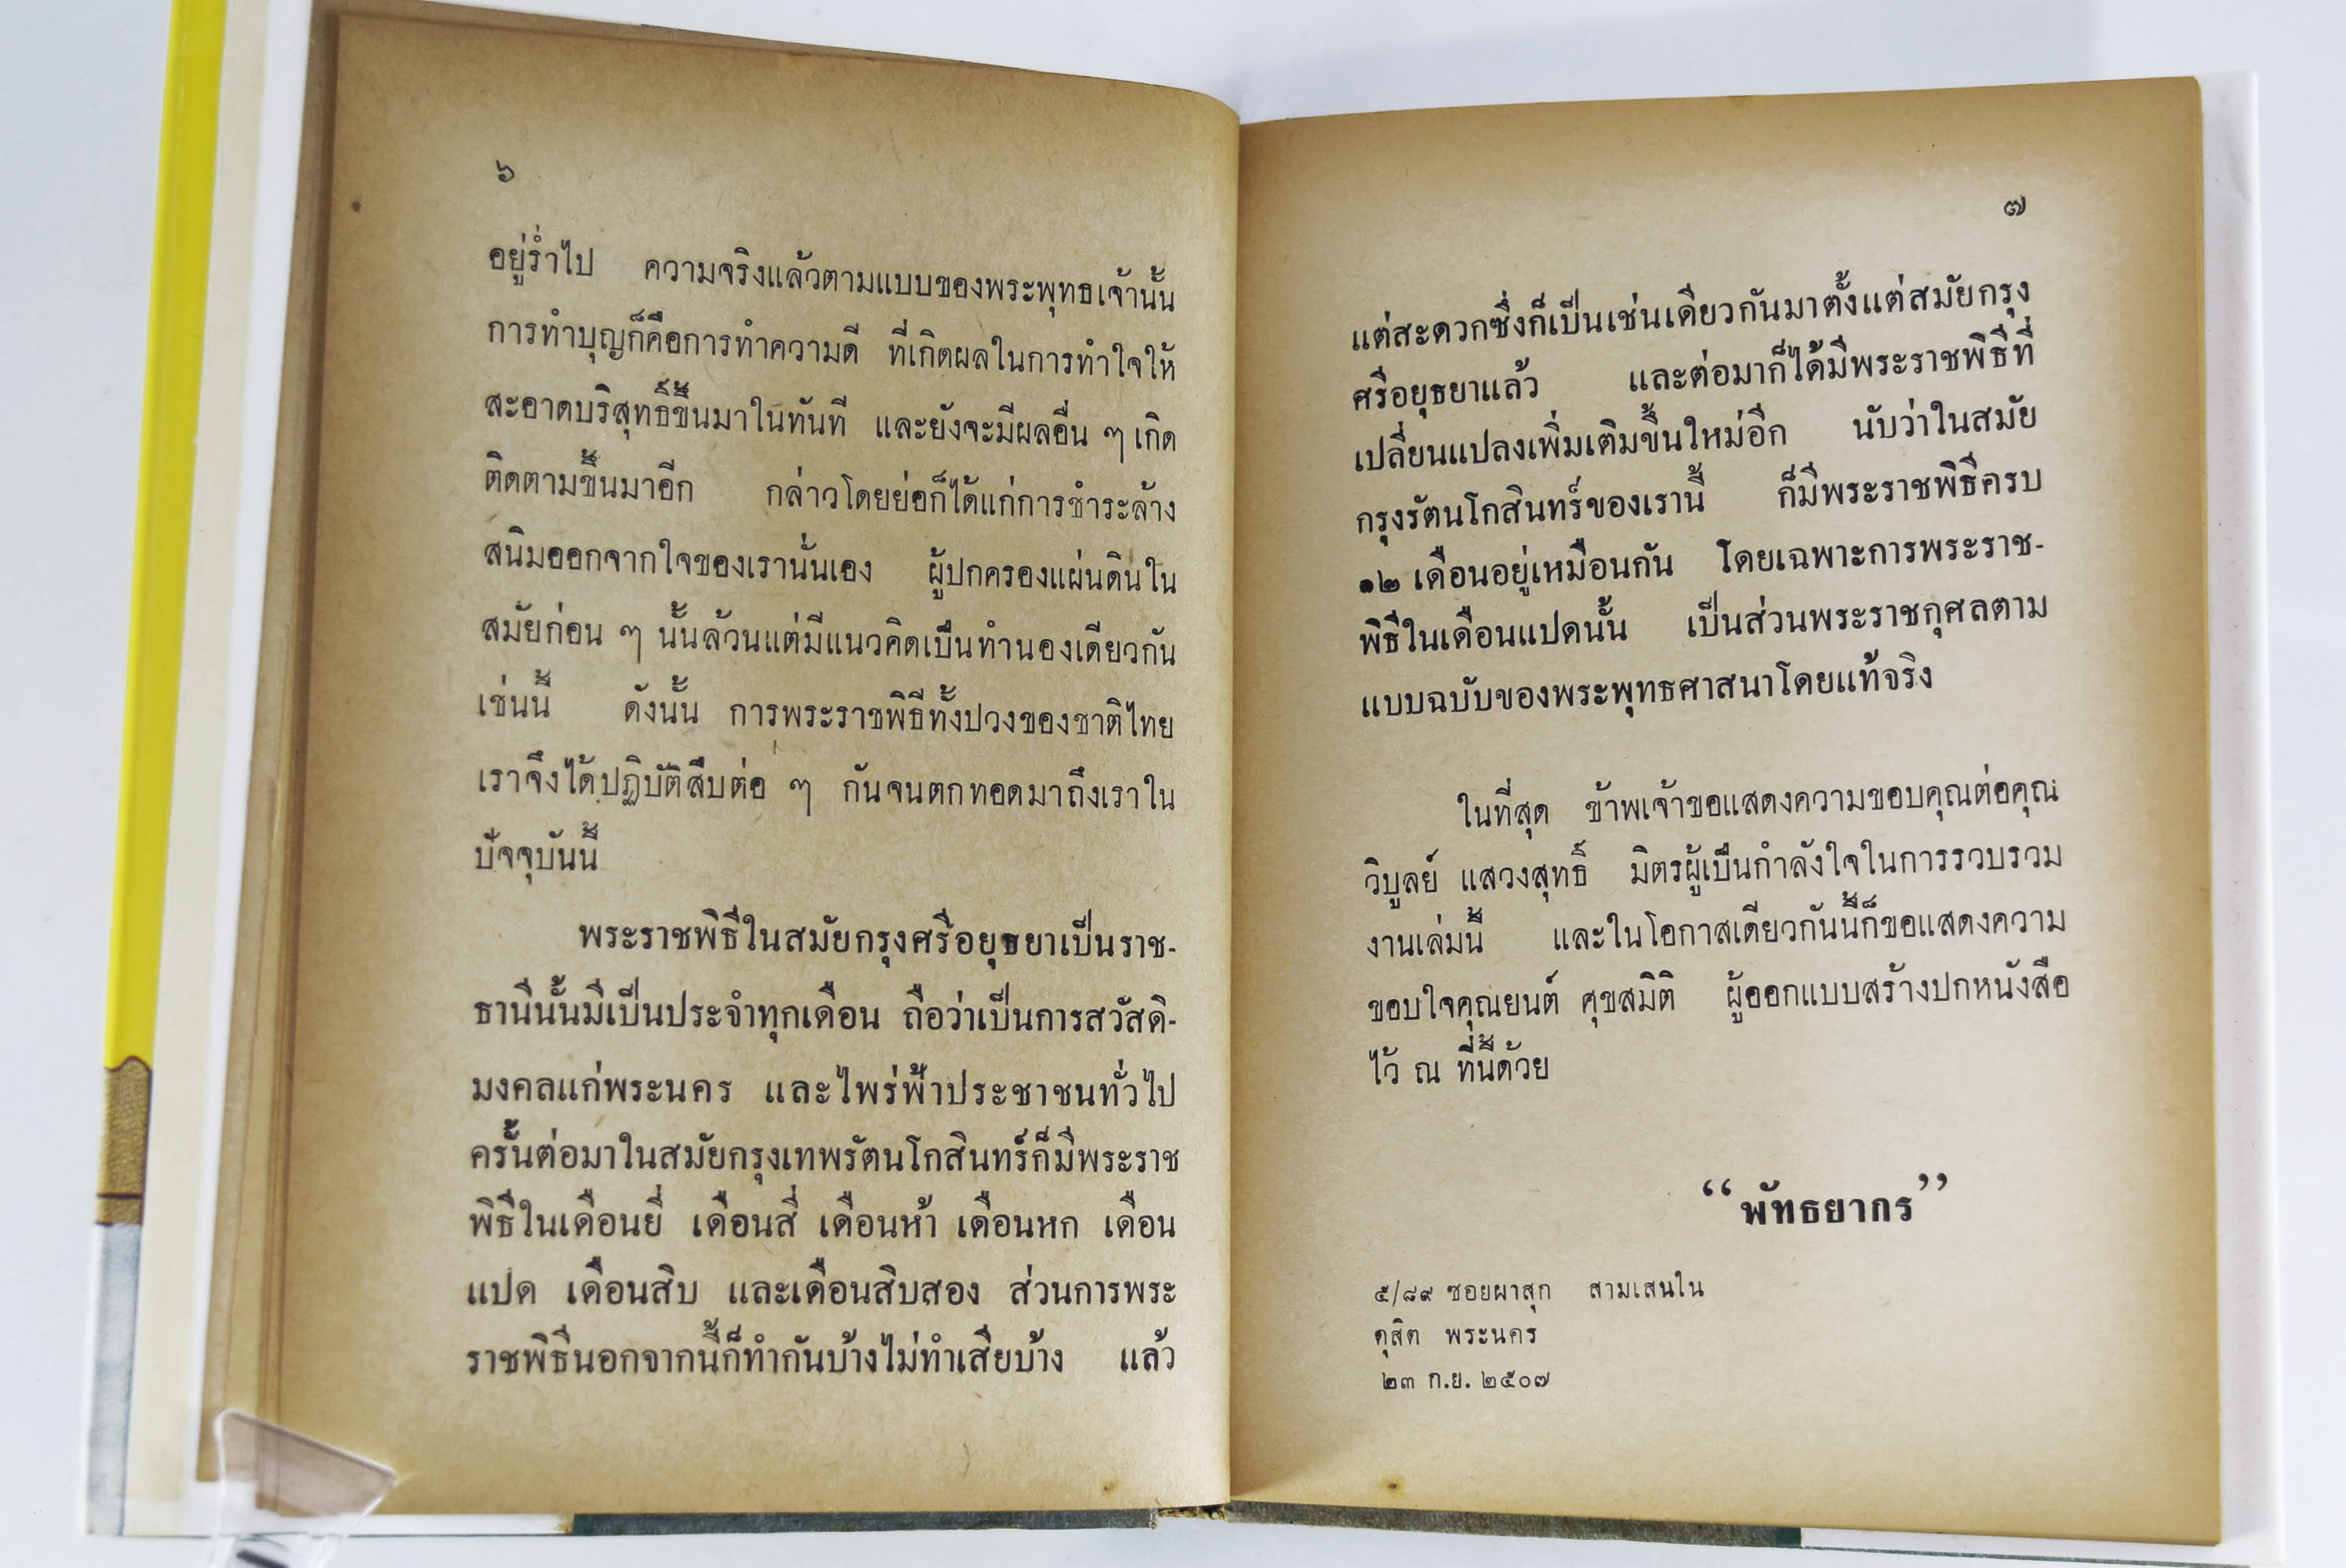 ๖
อยู่ร่ำไป ความจริงแล้วตามแบบของพระพุทธเจ้านั้น
การทำบุญก็คือการทำความดี ที่เกิดผลในการทำใจให้
สะอาดบริสุทธิ์ขึ้นมาในทันที และยังจะมีผลอื่น ๆ เกิด
ติดตามขึ้นมาอีก กล่าวโดยย่อก็ได้แก่การชำระล้าง
สนิมออกจากใจของเรานั่นเอง ผู้ปกครองแผ่นดินใน
สมัยก่อน ๆ นั้นล้วนแต่มีแนวคิดเป็นทำนองเดียวกัน
เช่นนี้ ดังนั้น การพระราชพิธีทั้งปวงของชาติไทย
เราจึงได้ปฏิบัติสืบต่อ ๆ กันจนตกทอดมาถึงเราใน
ปัจจุบันนี้
พระราชพิธีในสมัยกรุงศรีอยุธยาเป็นราช-
ธานีนั้นมีเป็นประจำทุกเดือน ถือว่าเป็นการสวัสดิ-
มงคลแก่พระนคร และไพร่ฟ้าประชาชนทั่วไป
ครั้นต่อมาในสมัยกรุงเทพรัตนโกสินทร์ก็มีพระราช
พิธีในเดือนยี่ เดือนสี่ เดือนห้า เดือนหก เดือน
แปด เดือนสิบ และเดือนสิบสอง ส่วนการพระ
ราชพิธีนอกจากนี้ก็ทำกันบ้างไม่ทำเสียบ้าง แล้ว
๗
แต่สะดวกซึ่งก็เป็นเช่นเดียวกันมาตั้งแต่สมัยกรุง
ศรีอยุธยาแล้ว และต่อมาก็ได้มีพระราชพิธีที่
เปลี่ยนแปลงเพิ่มเติมขึ้นใหม่อีก นับว่าในสมัย
กรุงรัตนโกสินทร์ของเรานี้ ก็มีพระราชพิธีครบ
๑๒ เดือนอยู่เหมือนกัน โดยเฉพาะการพระราช-
พิธีในเดือนแปดนั้น เป็นส่วนพระราชกุศลตาม
แบบฉบับของพระพุทธศาสนาโดยแท้จริง
ในที่สุด ข้าพเจ้าขอแสดงความขอบคุณต่อคุณ
วิบูลย์ แสวงสุทธิ์ มิตรผู้เป็นกำลังใจในการรวบรวม
งานเล่มนี้ และในโอกาสเดียวกันนี้ก็ขอแสดงความ
ขอบใจคุณยนต์ ศุขสมิติ ผู้ออกแบบสร้างปกหนังสือ
ไว้ ณ ที่นี้ด้วย
“พัทธยากร”
๕/๘๙ ซอยผาสุก สามเสนใน
ดุสิต พระนคร
๒๓ ก.ย. ๒๕๐๗